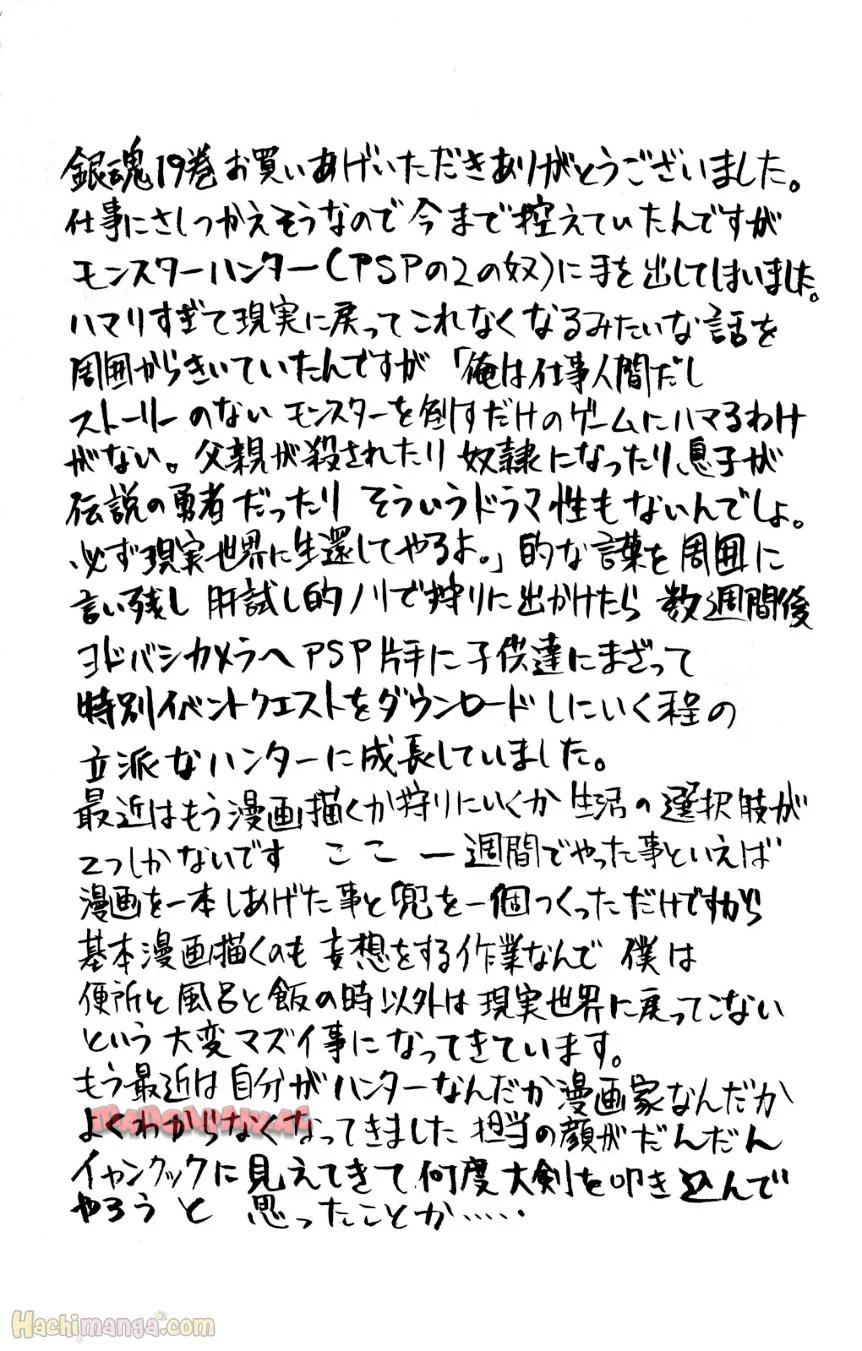 銀魂19巻お買いあげいただきありがとうございました。
仕事にさしつかえそうなので今まで控えていたんですが
モンスターハンター(PSPの2の奴)に手を出してしまいました。
ハマりすぎて現実に戻ってこれなくなるみたいな話を
周囲からきいていたんですが「俺は仕事人間だし
ストーリーのないモンスターを倒すだけのゲームにハマるわけ
がない。父親が殺されたり奴隷になったり、息子が
伝説の勇者だったりそういうドラマ性もないんでしょ。
必ず現実世界に生還してやるよ。」的な言葉を周囲に
言い残し肝試し的ノリで狩りに出かけたら数週間後
ヨドバシカメラへPSP片手に子供達にまざって
特別イベントクエストをダウンロードしにいく程の
立派なハンターに成長していました。
最近はもう漫画描くか狩りにいくか生活の選択肢が
2つしかないです ここ一週間でやった事といえば
漫画を一本しあげた事と兜を一個つくっただけですから
基本漫画描くのも妄想をする作業なんで僕は
便所と風呂と飯の時以外は現実世界に戻ってこない
という大変マズイ事になってきています。
もう最近は自分がハンターなんだか漫画家なんだか
よくわからなくなってきました担当の顔がだんだん
イャンクックに見えてきて何度大剣を叩き込んで
やろうと思ったことか……
Hachimanga.com